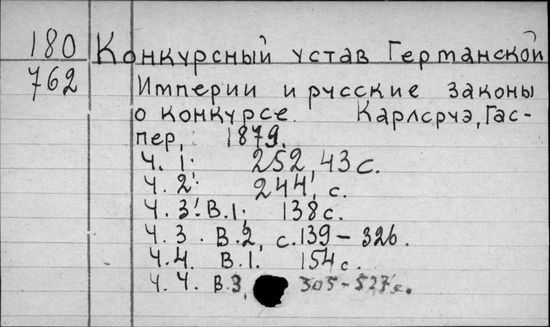 180 Конкурсный устав Германской
762 Империи и русские законы
о конкурсе. Карлсруэ, Гас-
пер, 1879.
Ч. 1: 252, 43 с.
Ч. 2: 244, с.
Ч. 3: В.1; 138 с.
Ч. 3. В.2, с. 139-326.
Ч.4. В.1. 154 с.
Ч.4. В.3, 305-527 с.